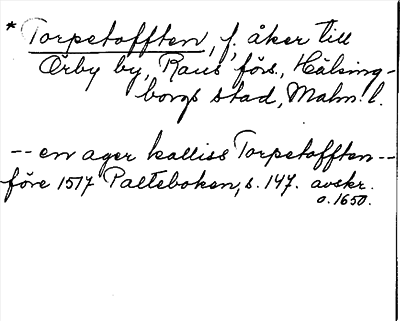 * Torpetofften, f, åker till
Örby by, Raus förs., Hälsing-
borgs stad, Malm. l.
-- en ager kalliss Torpetofften --
före 1517 Palteboken, s. 147. avskr.
o. 1650.